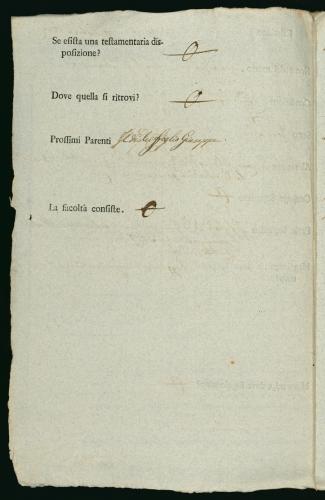 Se esista una testamentaria dis-
posizione? 0
Dove quella si ritrovi? 0
Prossimi Parenti Il di lei figlio Giuseppe
La facoltà consiste. 0